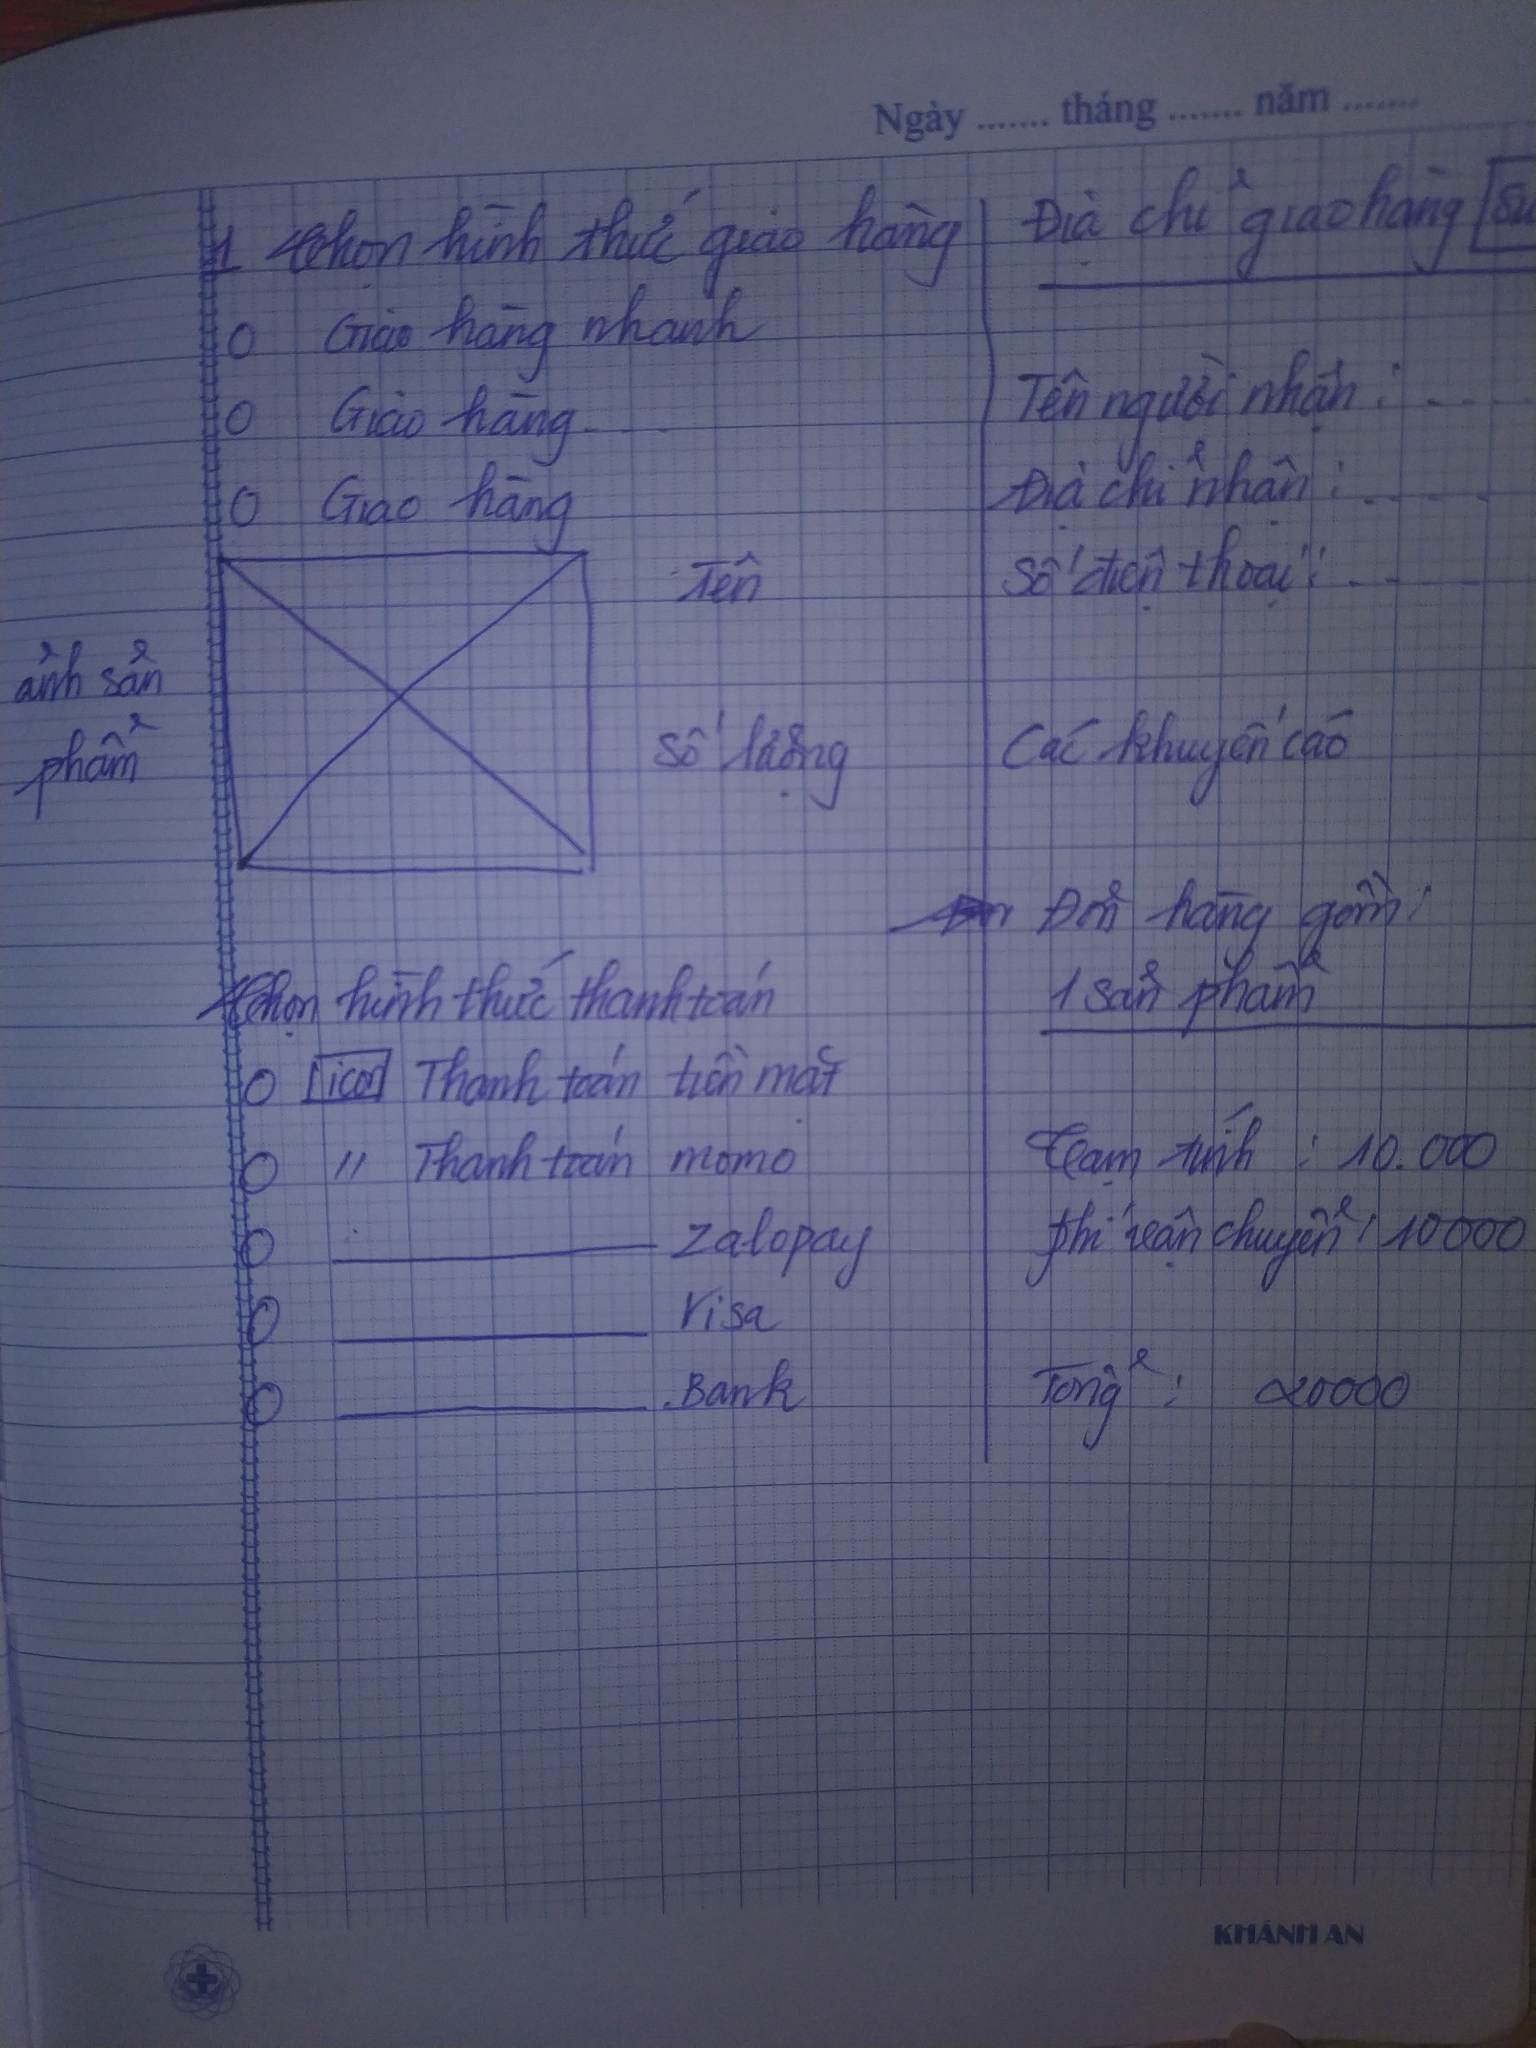 Ngày ....... tháng ....... năm .......
1 Chọn hình thức giao hàng
O Giao hàng nhanh
O Giao hàng ....
O Giao hàng
ảnh sản
phẩm
Tên
Số lượng
Chọn hình thức thanh toán
O icon Thanh toán tiền mặt
O " Thanh toán momo
O Zalopay
O Visa
O Bank
Địa chỉ giao hàng
Tên người nhận : - - - -
Địa chỉ nhận : - - - -
Số điện thoại : - - - -
Các khuyến cáo
Đơn hàng gồm :
1 sản phẩm
Tạm tính : 10.000
Phí vận chuyển : 10000
Tổng : 20000
KHÁNH AN